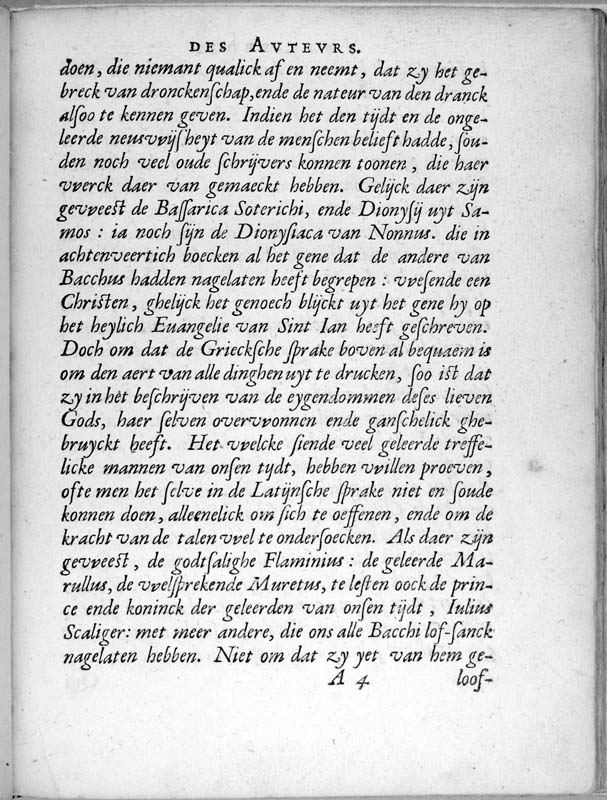 DES AVTEVRS.
doen, die niemant qualick af en neemt, dat zy het ge-
breck van dronckenſchap, ende de nateur van den dranck
alſoo te kennen geven. Indien het den tijdt en de onge-
leerde neuſwijſheyt van de menſchen belieft hadde, ſou-
den noch veel oude ſchrijvers konnen toonen, die haer
vverck daer van gemaeckt hebben. Gelijck daer zijn
gevveeſt de Baſſarica Soterichi, ende Dionyſij uyt Sa-
mos: ia noch ſijn de Dionyſiaca van Nonnus. die in
achtenveertich boecken al het gene dat de andere van
Bacchus hadden nagelaten heeft begrepen: vveſende een
Chriſten, ghelijck het genoech blijckt uyt het gene hy op
het heylich Euangelie van Sint Ian heeft geſchreven.
Doch om dat de Grieckſche ſprake boven al bequaem is
om den aert van alle dinghen uyt te drucken, ſoo iſt dat
zy in het beſchrijven van de eygendommen deſes lieven
Gods, haer ſelven overvvonnen ende ganſchelick ghe-
bruyckt heeft. Het vvelcke ſiende veel geleerde treffe-
licke mannen van onſen tijdt, hebben vvillen proeven,
ofte men het ſelve in de Latijnſche ſprake niet en ſoude
konnen doen, alleenelick om ſich te oeffenen, ende om de
kracht van de talen vvel te onderſoecken. Als daer zijn
gevveeſt, de godtſalighe Flaminius: de geleerde Ma-
rullus, de vvelſprekende Muretus, te leſten oock de prin-
ce ende koninck der geleerden van onſen tijdt, Iulius
Scaliger: met meer andere, die ons alle Bacchi lof-ſanck
nagelaten hebben. Niet om dat zy yet van hem ge-
A 4 loof-